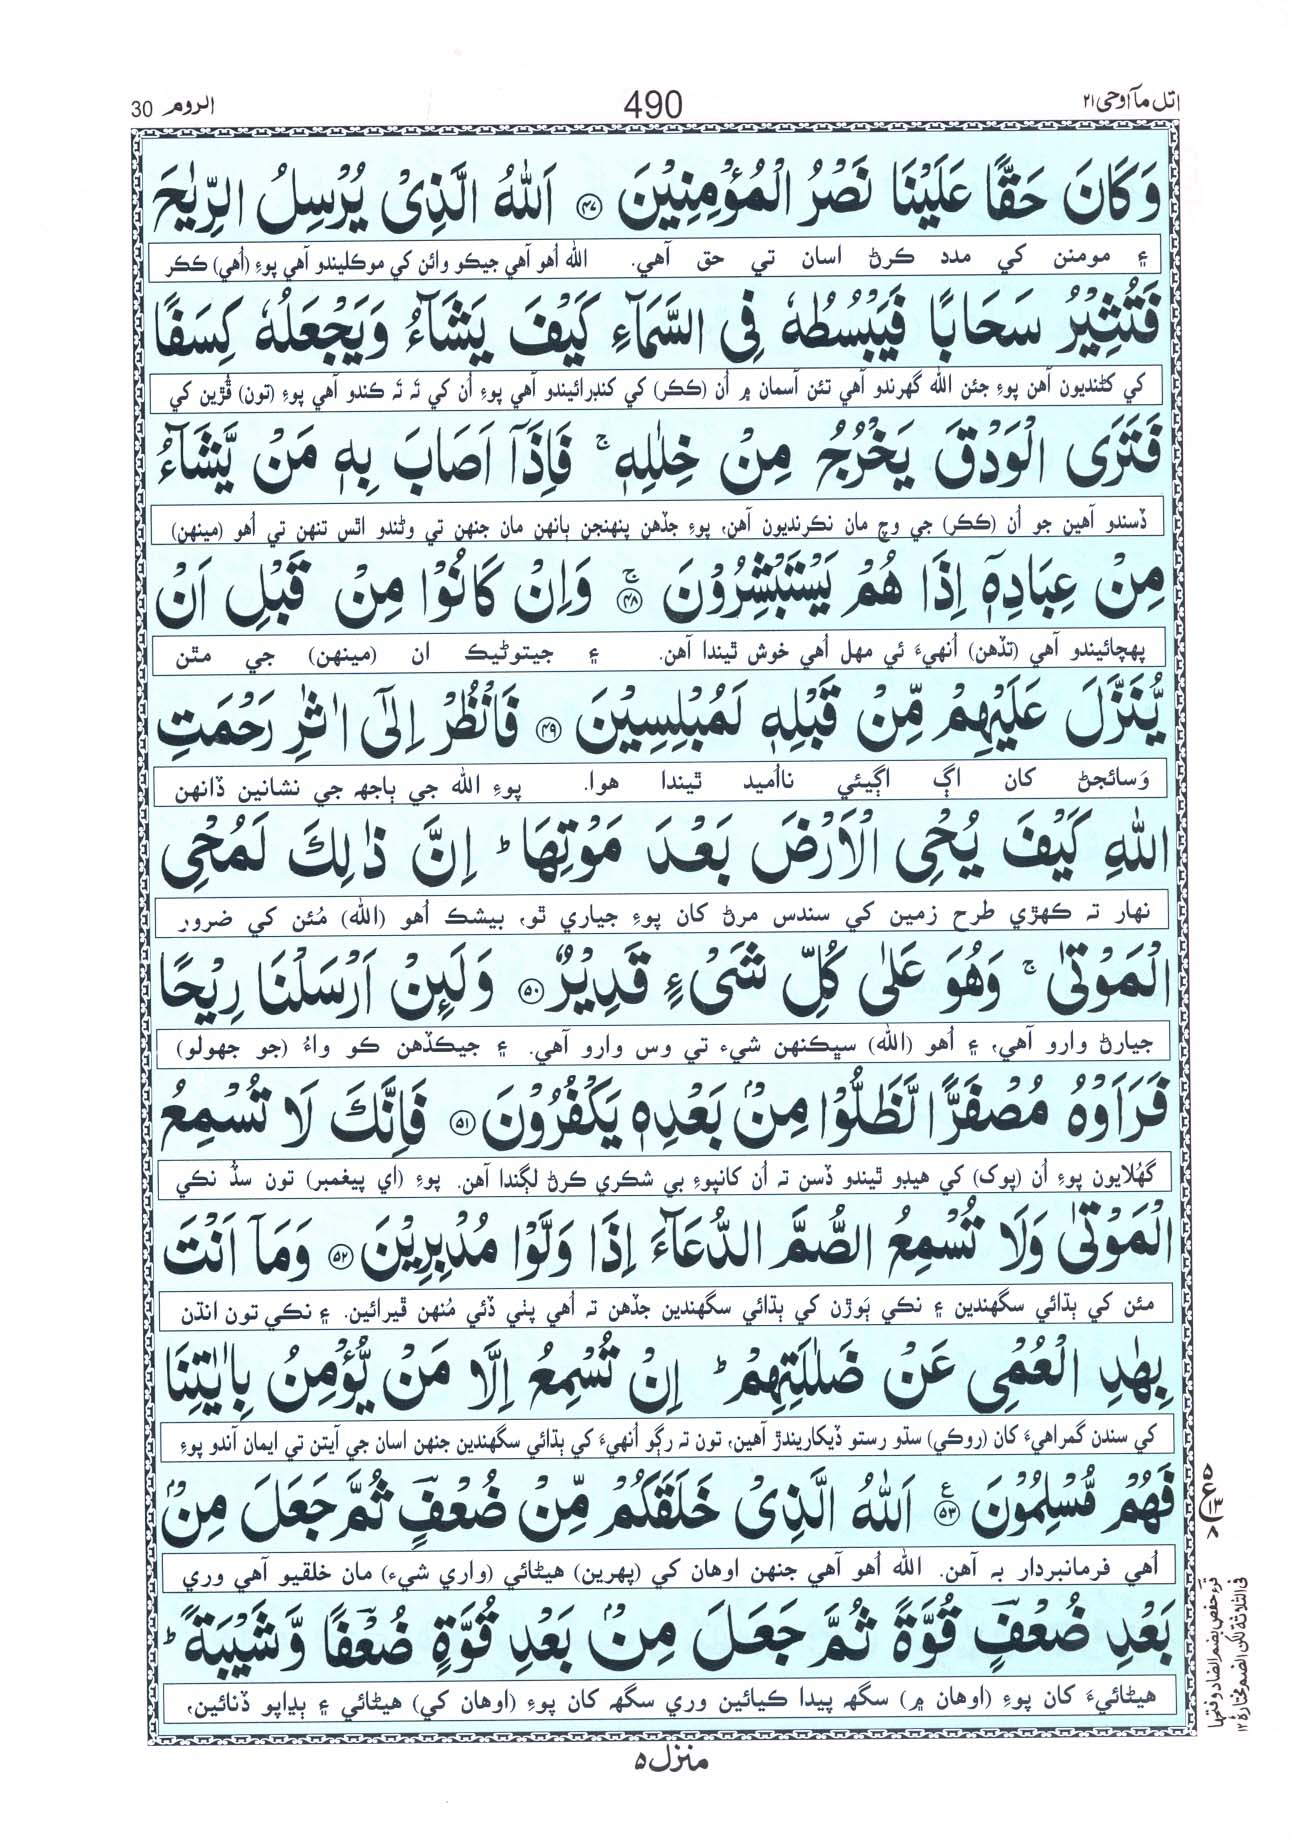 اتل مآ اوحی ۲۱
490
الروم 30
وَكَانَ حَقًّا عَلَيْنَا نَصْرُ الْمُؤْمِنِيْنَ ۴۷ اَللّٰهُ الَّذِیْ يُرْسِلُ الرِّيٰحَ
۽ مومنن کي مدد ڪرڻ اسان تي حق آهي. الله اُهو آهي جيڪو وائن کي موڪليندو آهي پوءِ (اُهي) ڪڪر
فَتُثِيْرُ سَحَابًا فَيَبْسُطُهٗ فِی السَّمَآءِ كَيْفَ يَشَآءُ وَيَجْعَلُهٗ كِسَفًا
کي کڻنديون آهن پوءِ جئن الله گهرندو آهي تئن آسمان ۾ اُن (ڪڪر) کي کنڊرائيندو آهي پوءِ اُن کي تَہ تَہ ڪندو آهي پوءِ (تون) ڦُڙين کي
فَتَرَى الْوَدْقَ يَخْرُجُ مِنْ خِلٰلِهٖ ۚ فَاِذَآ اَصَابَ بِهٖ مَنْ يَّشَآءُ
ڏسندو آهين جو اُن (ڪڪر) جي وچ مان نڪرنديون آهن، پوءِ جڏهن پنهنجن ٻانهن مان جنهن تي وڻندو اٿس تنهن تي اُهو (مينهن)
مِنْ عِبَادِهٖٓ اِذَا هُمْ يَسْتَبْشِرُوْنَ ۴۸ ۚ وَاِنْ كَانُوْا مِنْ قَبْلِ اَنْ
پهچائيندو آهي (تڏهن) اُنهيءَ ئي مهل اُهي خوش ٿيندا آهن. ۽ جيتوڻيڪ ان (مينهن) جي مٿن
يُّنَزَّلَ عَلَيْهِمْ مِّنْ قَبْلِهٖ لَمُبْلِسِيْنَ ۴۹ فَانْظُرْ اِلٰٓى اٰثٰرِ رَحْمَتِ
وَسائجڻ کان اڳ اڳيئي نااُميد ٿيندا هوا. پوءِ الله جي ٻاجهہ جي نشانين ڏانهن
اللّٰهِ كَيْفَ يُحْیِ الْاَرْضَ بَعْدَ مَوْتِهَا ؕ اِنَّ ذٰلِكَ لَمُحْیِ
نهار تہ ڪهڙي طرح زمين کي سندس مرڻ کان پوءِ جياري ٿو، بيشڪ اُهو (الله) مُئن کي ضرور
الْمَوْتٰى ۚ وَهُوَ عَلٰى كُلِّ شَیْءٍ قَدِيْرٌ ۵۰ وَلَئِنْ اَرْسَلْنَا رِيْحًا
جيارڻ وارو آهي، ۽ اُهو (الله) سڀڪنهن شيء تي وس وارو آهي. ۽ جيڪڏهن ڪو واءُ (جو جهولو)
فَرَاَوْهُ مُصْفَرًّا لَّظَلُّوْا مِنْۢ بَعْدِهٖ يَكْفُرُوْنَ ۵۱ فَاِنَّكَ لَا تُسْمِعُ
گهُلايون پوءِ اُن (پوک) کي هيڊو ٿيندو ڏسن تہ اُن کانپوءِ بي شڪري ڪرڻ لڳندا آهن. پوءِ (اي پيغمبر) تون سڏُ نڪي
الْمَوْتٰى وَلَا تُسْمِعُ الصُّمَّ الدُّعَآءَ اِذَا وَلَّوْا مُدْبِرِيْنَ ۵۲ وَمَآ اَنْتَ
مئن کي ٻڌائي سگهندين ۽ نڪي ٻَوڙن کي ٻڌائي سگهندين جڏهن تہ اُهي پٺي ڏئي مُنهن ڦيرائين. ۽ نڪي تون انڌن
بِهٰدِ الْعُمْیِ عَنْ ضَلٰلَتِهِمْ ؕ اِنْ تُسْمِعُ اِلَّا مَنْ يُّؤْمِنُ بِاٰيٰتِنَا
کي سندن گمراهيءَ کان (روڪي) سڌو رستو ڏيکاريندڙ آهين، تون تہ رڳو اُنهيءَ کي ٻڌائي سگهندين جنهن اسان جي آيتن تي ايمان آندو پوءِ
فَهُمْ مُّسْلِمُوْنَ ۵۳ ع اَللّٰهُ الَّذِیْ خَلَقَكُمْ مِّنْ ضُعْفٍ ثُمَّ جَعَلَ مِنْۢ
اُهي فرمانبردار بہ آهن. الله اُهو آهي جنهن اوهان کي (پهرين) هيڻائي (واري شيء) مان خلقيو آهي وري
بَعْدِ ضُعْفٍ قُوَّةً ثُمَّ جَعَلَ مِنْۢ بَعْدِ قُوَّةٍ ضُعْفًا وَّشَيْبَةً ؕ
هيڻائيءَ کان پوءِ (اوهان ۾) سگهہ پيدا ڪيائين وري سگهہ کان پوءِ (اوهان کي) هيڻائي ۽ ٻڍاپو ڏنائين،
منزل ۵
۵ ع ۱۳ ۸
قرء حفص بضم الضاد وفتحها
فی الثلاثة لکن الضم مختارة ۱۲